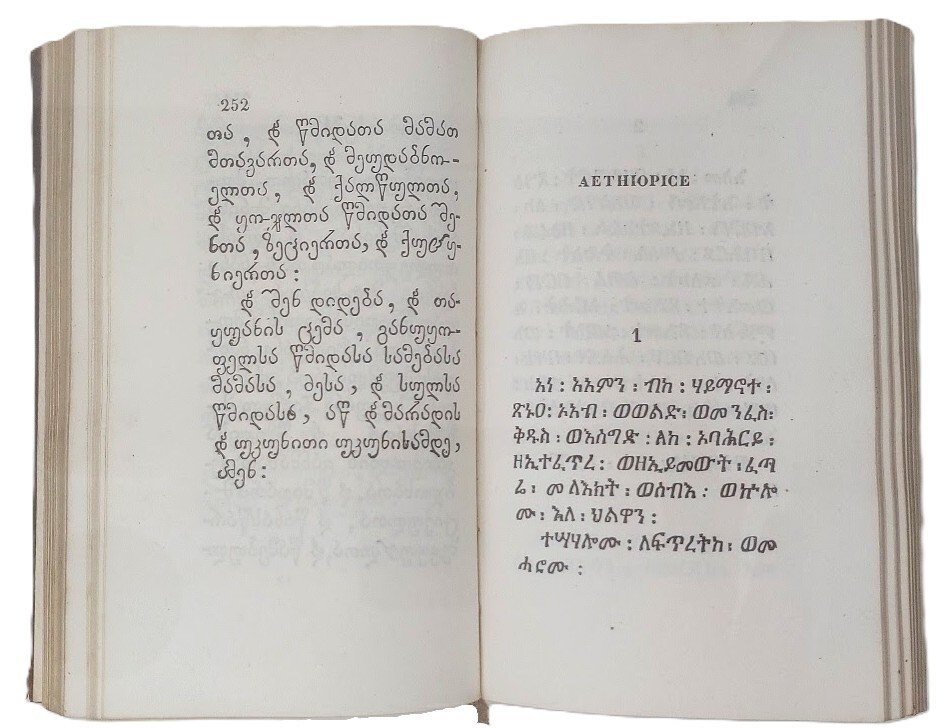 252
თა, და წმიდათა მამათ
მთავართა, და მეუდაბნო-
ელთა, და ქალწულთა,
და ყოველთა წმიდათა შე-
ნთა, ზეციერთა, და
ნიერთა:
და შენ დიდება, და თა-
ყუანის ცემა, განუყო-
ფელსა წმიდასა სამებასა
მამასა, ძესა, და სულსა
წმიდასა, აწ და მარადის
და უკუნითი უკუნისამდე,
ამენ:
AETHIOPICE
1
አነ ፡ አአምን ፡ ብከ ፡ ሃይማኖተ ፡
ጽኑዐ፡ ኦአብ ፡ ወወልድ፡ ወመንፈስ፡
ቅዱስ ፡ ወእሰግድ ፡ ለከ ፡ ኦባሕርይ ፡
ዘኢተፈጥረ፡ ወዘኢይመውት ፡ ፈጣ
ሬ፡ መላእክት ፡ ወሰብእ ፡ ወኵሎ
ሙ ፡ እለ ፡ ህልዋን ፡
ተሣሃሎሙ ፡ ለፍጥረትከ ፡ ወመ
ሓሮሙ ፡